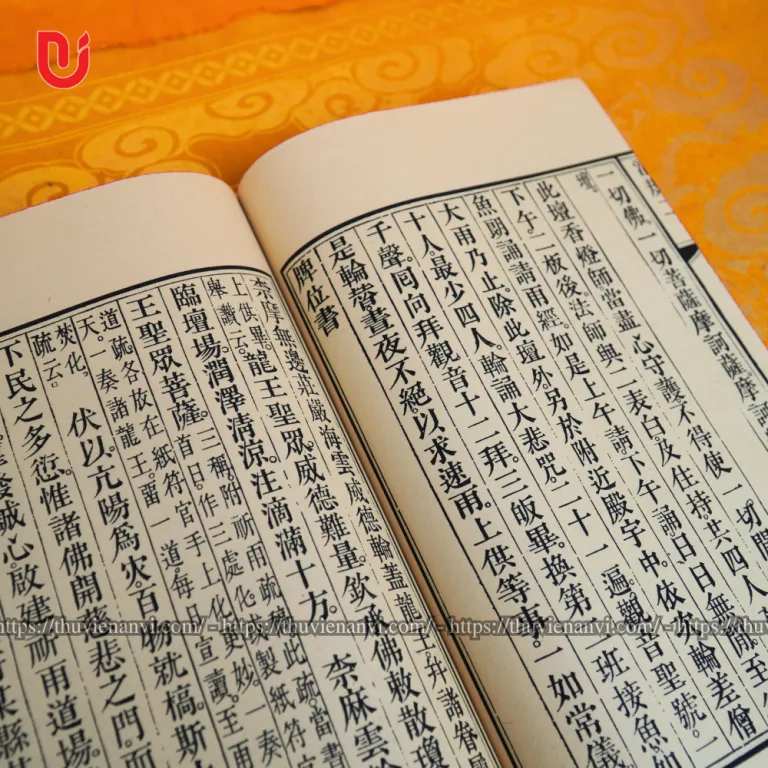 一切佛。一切菩薩摩訶薩。摩訶
壇。
此壇香燈師當盡心守護不得使一切閒
下午二板後法師與二表白及住持共四人
魚朗誦請雨經。如是上午請。下午誦日日無
大雨乃止。除此壇外另於附近殿宇中。依念輪差僧
十人最少四人。輪誦大悲咒。二十一遍。觀音聖號。一
千聲。同向拜觀音十二拜三皈畢。換第二班接魚如
是輪替晝夜不絕以求速雨。上供等事。一如常儀
牌位書
柰麻無邊莊嚴海雲威德輪蓋龍王幷諸眷
上供畢。
舉讚云。
龍王聖眾威德難量。欽承佛敕散瓊
臨壇場。潤澤清凉。注滴滿十方。 柰麻雲
王聖眾菩薩。三稱。附祈雨疏
首日。作三處化更妙。一奏
道疏。各放在紙符官手上化
天。一奏諸龍王。畱一道。每日宣讀至雨
焚化。
疏云。
伏以亢暘為災。百物就槁。斯
下民之多愆。惟諸佛開慈悲之門。而
發誠心。啟建祈雨道場。
https://thuvienanvi.com/ - https://thuvienanvi.com/ - https://thuvienanvi.com/ - https://thuvienanvi.com/